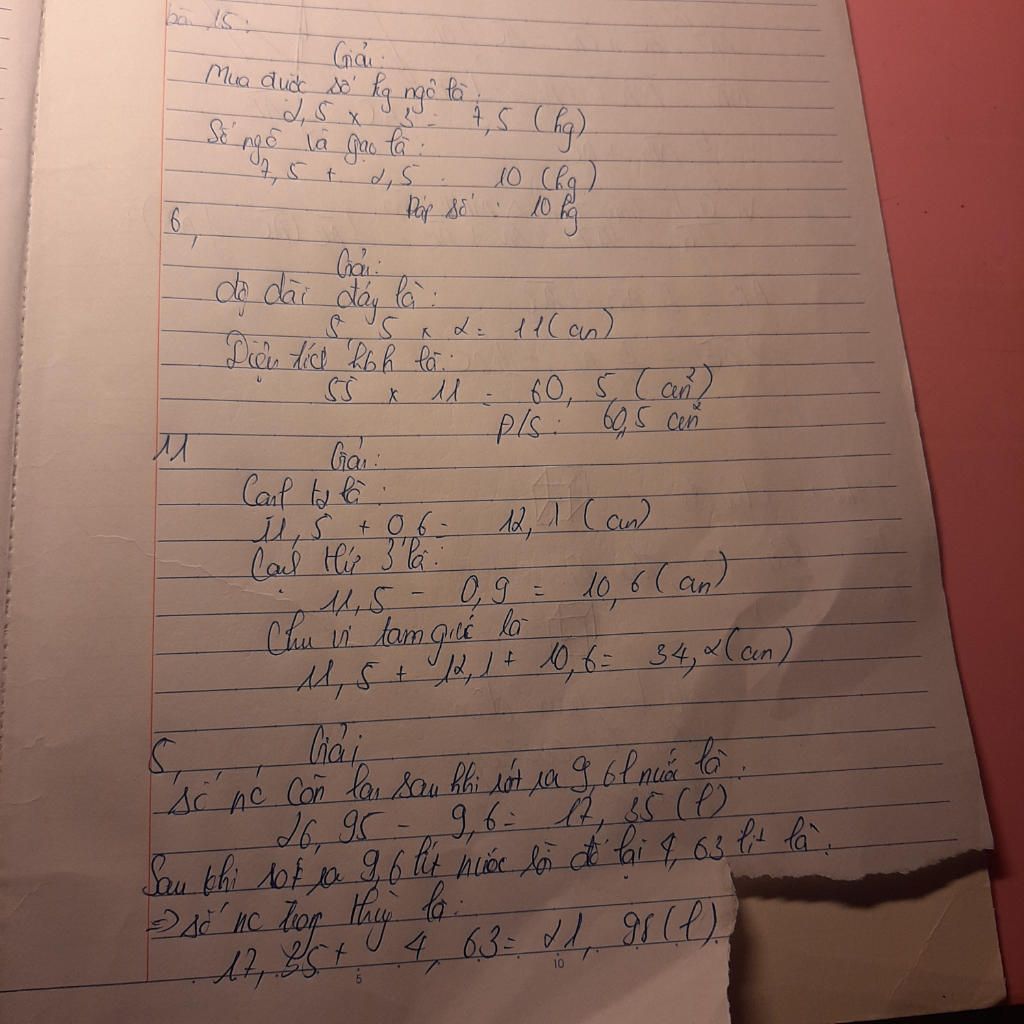 bài 15:
Giải:
Mua được số kg ngô là:
2,5 x 3 = 7,5 (kg)
Số ngô và gạo là:
7,5 + 2,5 = 10 (kg)
Đáp số: 10 kg
6,
Giải:
độ dài đáy là:
5,5 x 2 = 11 (cm)
Diện tích hbh là:
55 x 11 = 60,5 (cm²)
Đ/S: 60,5 cm²
11
Giải:
Cạnh t2 là:
11,5 + 0,6 = 12,1 (cm)
Cạnh thứ 3 là:
11,5 - 0,9 = 10,6 (cm)
Chu vi tam giác là
11,5 + 12,1 + 10,6 = 34,2 (cm)
5,
Giải
số nc còn lại sau khi rót ra 9,6l nước là:
26,95 - 9,6 = 17,35 (l)
Sau khi rót ra 9,6 lít nước rồi đổ lại 4,63 lít là:
=> số nc trong thùg là:
17,35 + 4,63 = 21,98 (l)
5 10